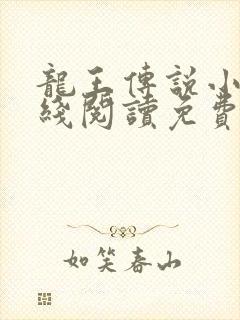 龍王傳說小
綫閱讀免費
如笑春山